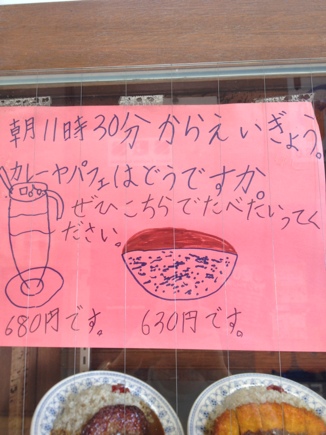 朝11時30分からえいぎょう。
カレーやパフェはどうですか。
ぜひこちらでたべたいってく
ださい。
680円です。
630円です。